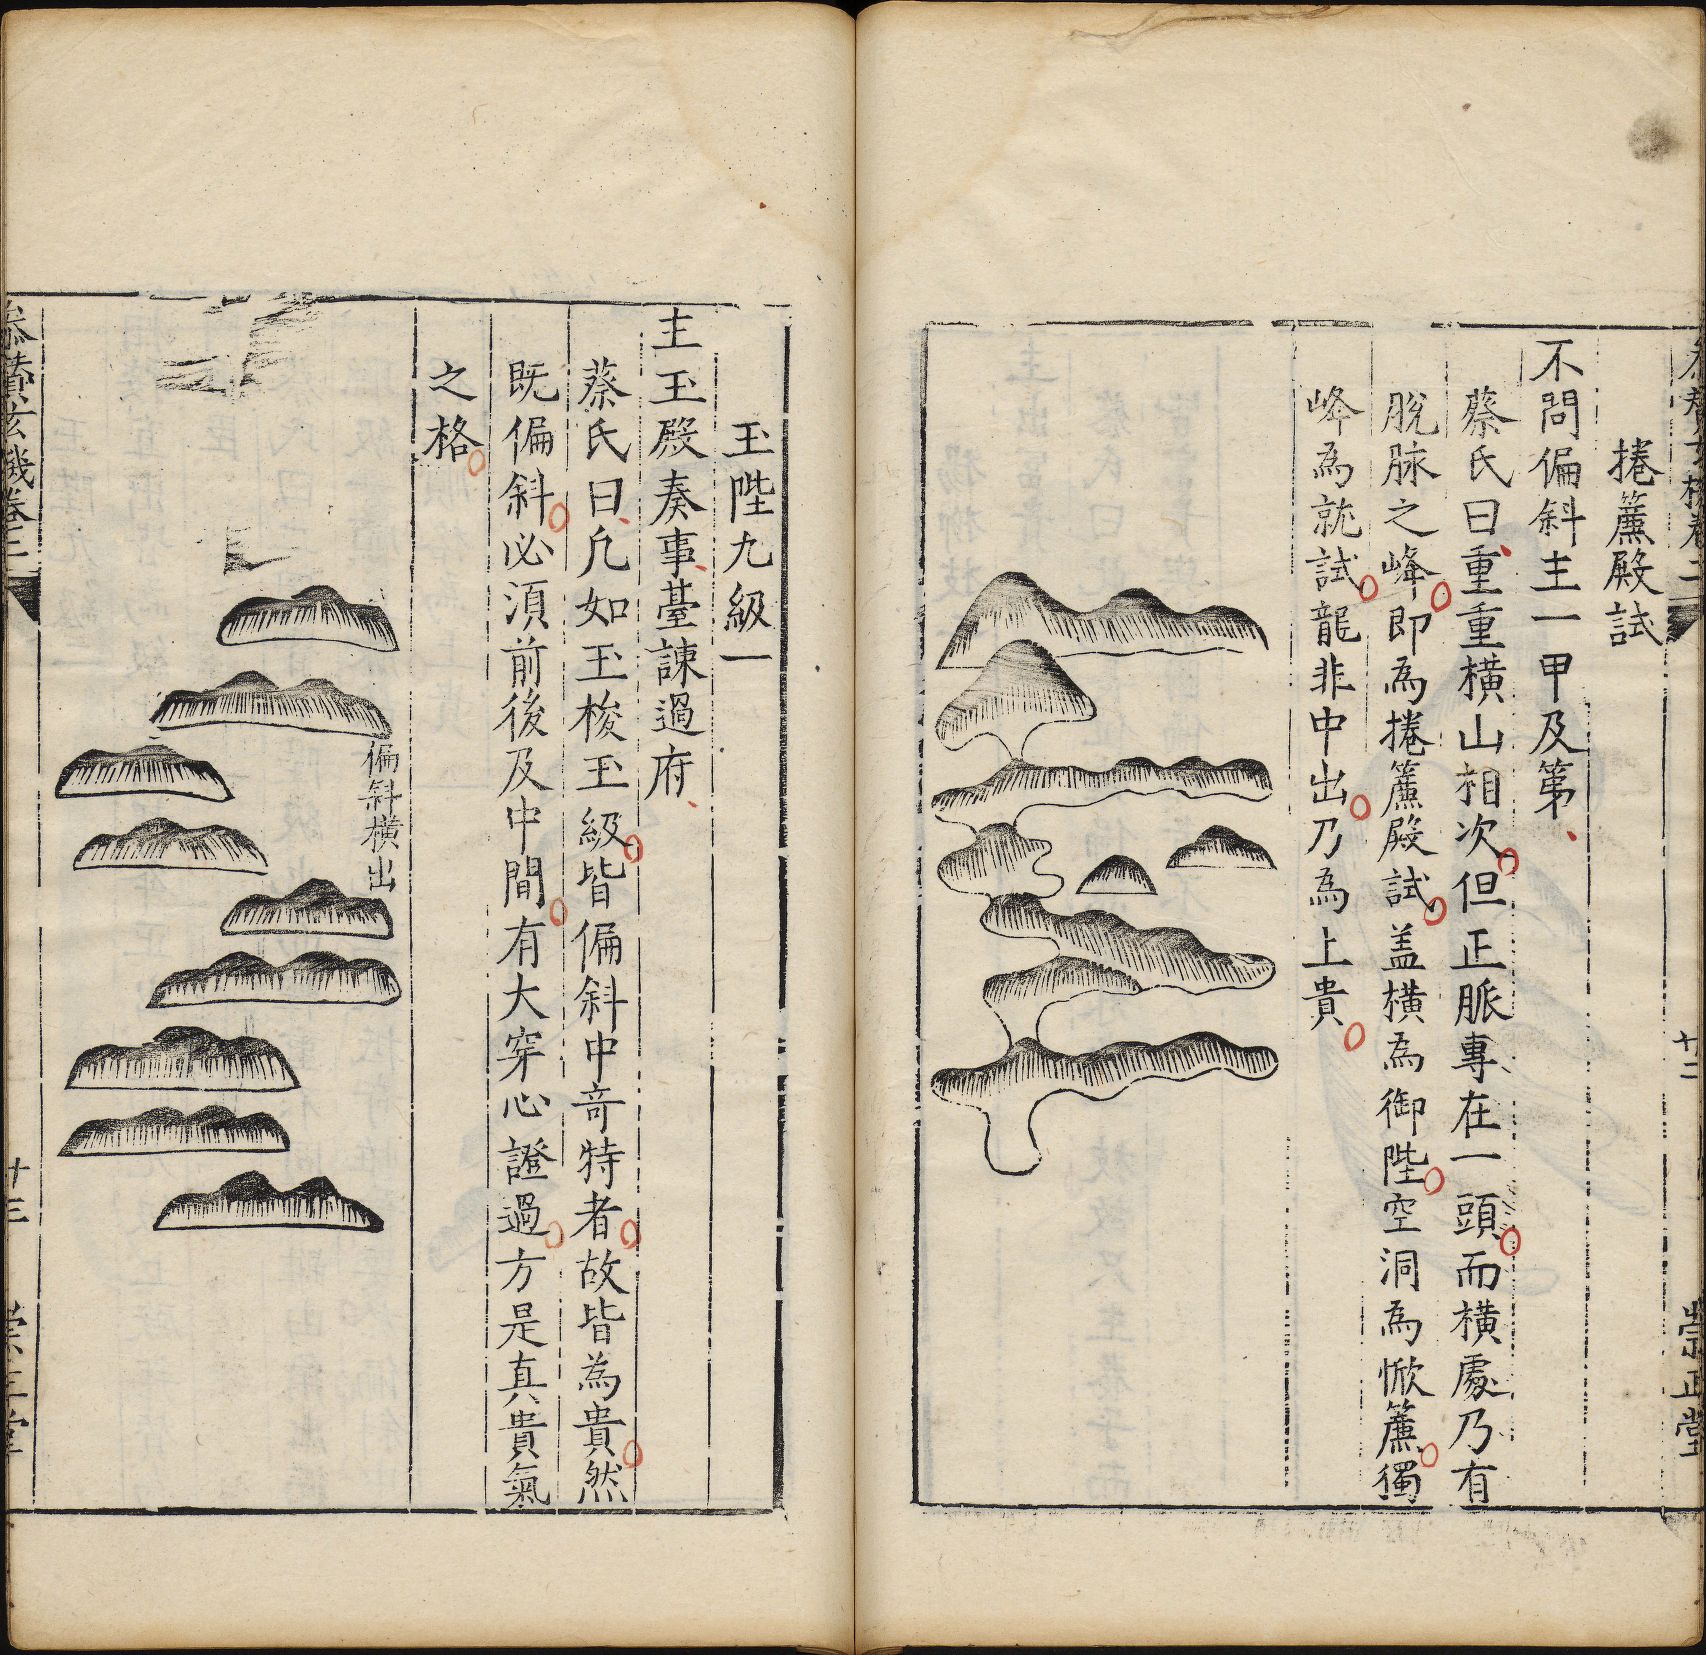 捲簾殿試
不問偏斜主一甲及第
蔡氏曰重重橫山相次但正脈專在一頭而橫處乃有
脫脉之峰即為捲簾殿試盖橫為御陛空洞為惞簾獨
峰為就試龍非中出乃為上貴
廿二
崇正堂
玉陛九級一
主玉殿奏事臺諫過府
蔡氏曰凢如玉梭玉級皆偏斜中竒特者故皆為貴然
既偏斜必須前後及中間有大穿心證過方是真貴氣
之格
偏斜橫出
玄機卷三
廿三